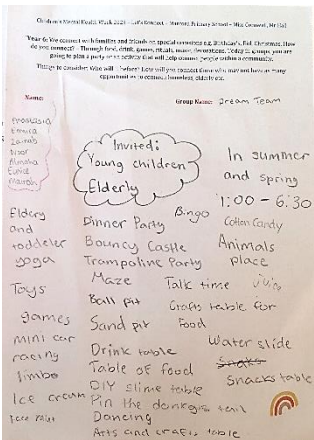 Children's Mental Health Week 2023 - Let's Connect - Primary School -
Year 6: We connect with families and friends on special occasions e.g. Birthday's, Eid, Christmas. How
do you connect? - Through food, drink, games, rituals, music, decorations. Today in groups, you are
going to plan a party or an activity that will help connect people within a community.
Things to consider: Who will How will you connect those who may not have as many
opportunities to connect e.g. homeless, elderly etc.
Name:
Group Name: Dream Team
Zainab
Noor
Invited:
Young children
Elderly
In summer
and spring
1:00 - 6:30
Eldery
and
toddeler
yoga
Toys
games
mini car
racing
limbo
Ice cream
Dinner Party
Bouncy Castle
Trampoline Party
Maze
Ball pit
Sand pit
Drink table
Table of food
DIY slime table
Pin the donkeys tail
Dancing
Arts and crafts table
Bingo
Talk time
Crafts table for
food
Cotton Candy
Animals
place
juice
Water slide
Snacks table